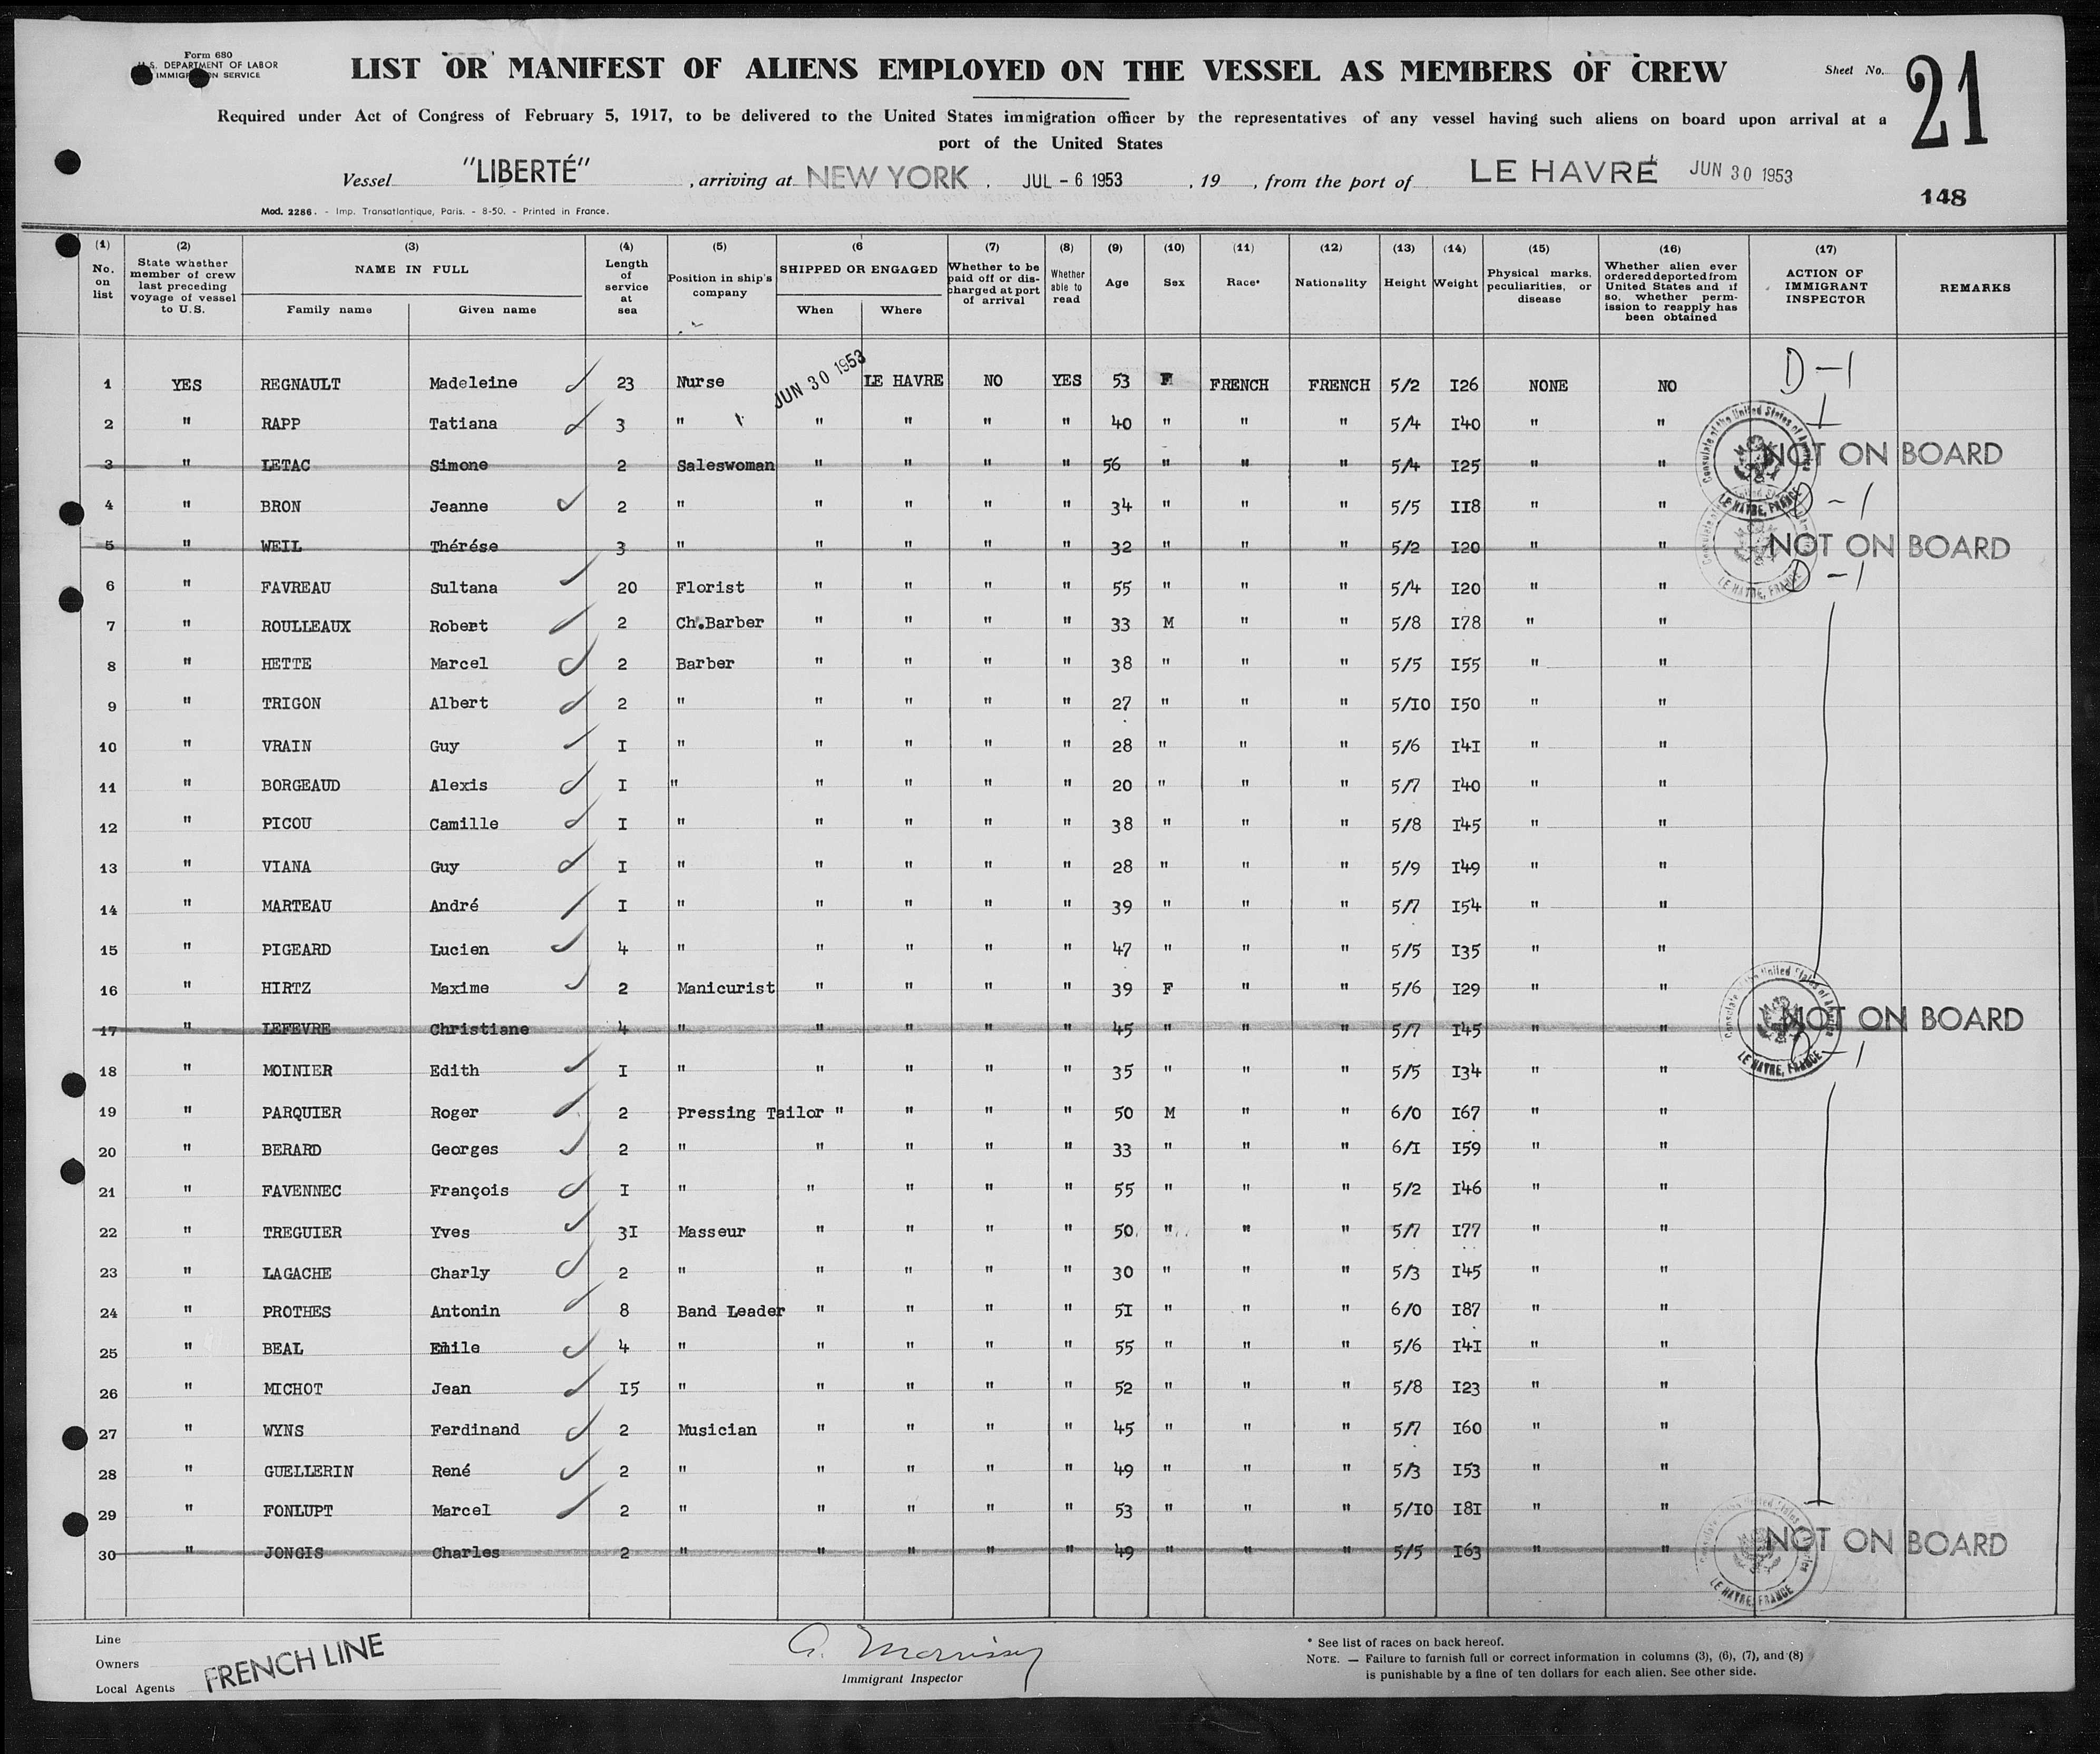 Form 680
U.S. DEPARTMENT OF LABOR
IMMIGRATION SERVICE
LIST OR MANIFEST OF ALIENS EMPLOYED ON THE VESSEL AS MEMBERS OF CREW
Sheet No. 21
Required under Act of Congress of February 5, 1917, to be delivered to the United States immigration officer by the representatives of any vessel having such aliens on board upon arrival at a
port of the United States
Vessel "LIBERTÉ" , arriving at NEW YORK . JUL - 6 1953 , 19 , from the port of LE HAVRE JUN 30 1953
148
Mod. 2286. - Imp. Transatlantique, Paris. - 8-50. - Printed in France.
(1) No. on list (2) State whether member of crew last preceding voyage of vessel to U.S. (3) NAME IN FULL Family name Given name (4) Length of service at sea (5) Position in ship's company (6 SHIPPED OR ENGAGED When Where (7) Whether to be paid off or discharged at port of arrival (8) Whether able to read (9) Age (10) Sex (11) Race* (12) Nationality (13) Height (14) Weight (15) Physical marks, peculiarities, or disease (16) Whether alien ever ordered deported from United States and if so, whether permission to reapply has been obtained (17) ACTION OF IMMIGRANT INSPECTOR REMARKS
1 YES REGNAULT Madeleine 23 Nurse JUN 30 1953 LE HAVRE NO YES 53 F FRENCH FRENCH 5/2 I26 NONE NO D-1
2 " RAPP Tatiana 3 " " " " " 40 " " " 5/4 I40 " "
3 " LETAC Simone 2 Saleswoman " " " " 56 " " " 5/4 I25 " " NOT ON BOARD
4 " BRON Jeanne 2 " " " " " 34 " " " 5/5 II8 " " D-1
5 " WEIL Thérése 3 " " " " " 32 " " " 5/2 I20 " " NOT ON BOARD
6 " FAVREAU Sultana 20 Florist " " " " 55 " " " 5/4 I20 " " D-1
7 " ROULLEAUX Robert 2 Ch.Barber " " " " 33 M " " 5/8 I78 " "
8 " HETTE Marcel 2 Barber " " " " 38 " " " 5/5 I55 " "
9 " TRIGON Albert 2 " " " " " 27 " " " 5/IO I50 " "
10 " VRAIN Guy I " " " " " 28 " " " 5/6 I4I " "
11 " BORGEAUD Alexis I " " " " " 20 " " " 5/7 I40 " "
12 " PICOU Camille I " " " " " 38 " " " 5/8 I45 " "
13 " VIANA Guy I " " " " " 28 " " " 5/9 I49 " "
14 " MARTEAU André I " " " " " 39 " " " 5/7 I54 " "
15 " PIGEARD Lucien 4 " " " " " 47 " " " 5/5 I35 " "
16 " HIRTZ Maxime 2 Manicurist " " " " 39 F " " 5/6 I29 " "
17 " LEFEVRE Christiane 4 " " " " " 45 " " " 5/7 I45 " " NOT ON BOARD
18 " MOINIER Edith I " " " " " 35 " " " 5/5 I34 " " D-1
19 " PARQUIER Roger 2 Pressing Tailor " " " " 50 M " " 6/0 I67 " "
20 " BERARD Georges 2 " " " " " 33 " " " 6/I I59 " "
21 " FAVENNEC François I " " " " " 55 " " " 5/2 I46 " "
22 " TREGUIER Yves 3I Masseur " " " " 50 " " " 5/7 I77 " "
23 " LAGACHE Charly 2 " " " " " 30 " " " 5/3 I45 " "
24 " PROTHES Antonin 8 Band Leader " " " " 5I " " " 6/0 I87 " "
25 " BEAL Emile 4 " " " " " 55 " " " 5/6 I4I " "
26 " MICHOT Jean I5 " " " " " 52 " " " 5/8 I23 " "
27 " WYNS Ferdinand 2 Musician " " " " 45 " " " 5/7 I60 " "
28 " GUELLERIN René 2 " " " " " 49 " " " 5/3 I53 " "
29 " FONLUPT Marcel 2 " " " " " 53 " " " 5/IO I8I " "
30 " JONGIS Charles 2 " " " " " 49 " " " 5/5 I63 " " NOT ON BOARD
Consulate of the United States of America
LE HAVRE, FRANCE
LE HAVRE, FRANCE
Consulate of the United States of America
LE HAVRE, FRANCE
LE HAVRE, FRANCE
Line
Owners FRENCH LINE
Local Agents
Immigrant Inspector
* See list of races on back hereof.
NOTE. — Failure to furnish full or correct information in columns (3), (6), (7), and (8)
is punishable by a fine of ten dollars for each alien. See other side.